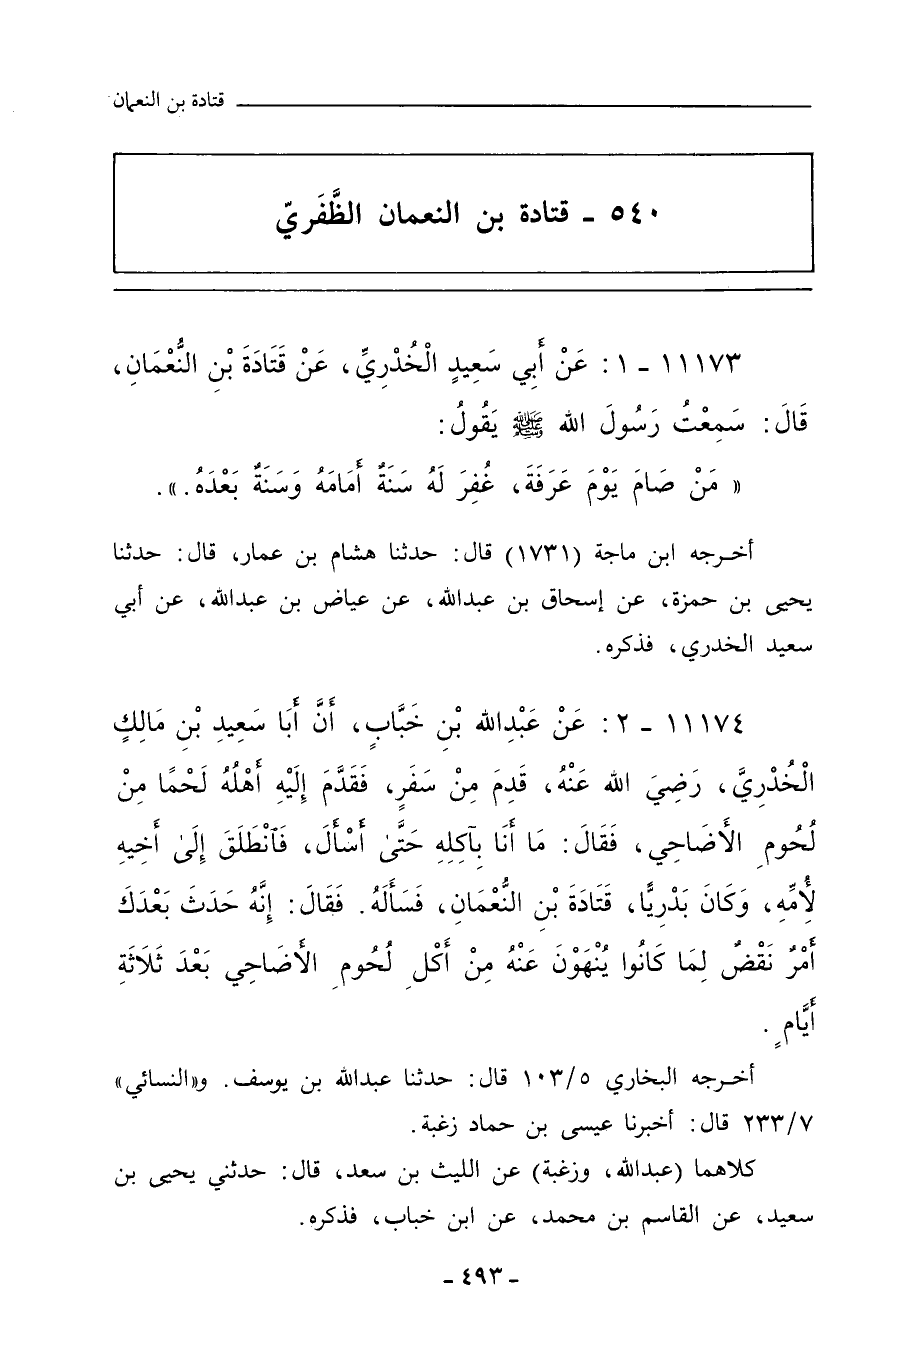 قتادة بن النعمان
٥٤٠ - قتادة بن النعمان الظَّفَريّ
١١١٧٣ - ١ : عَنْ أَبِي سَعِيدٍ الْخُدْرِيِّ، عَنْ قَتَادَةَ بْنِ النُّعْمَانِ،
قَالَ: سَمِعْتُ رَسُولَ الله ﷺ يَقُولُ:
« مَنْ صَامَ يَوْمَ عَرَفَةَ، غُفِرَ لَهُ سَنَةٌ أَمَامَهُ وَسَنَةٌ بَعْدَهُ.».
أخرجه ابن ماجة (١٧٣١) قال: حدثنا هشام بن عمار، قال: حدثنا
يحيى بن حمزة، عن إسحاق بن عبدالله، عن عياض بن عبدالله، عن أبي
سعيد الخدري، فذكره.
١١١٧٤ - ٢ : عَنْ عَبْدِالله بْنِ خَبَّابٍ، أَنَّ أَبَا سَعِيدِ بْنِ مَالِكٍ
الْخُدْرِيَّ، رَضِيَ الله عَنْهُ، قَدِمَ مِنْ سَفَرٍ، فَقَدَّمَ إِلَيْهِ أَهْلُهُ لَحْمًا مِنْ
لُحُومِ الأَضَاحِي، فَقَالَ: مَا أَنَا بِآكِلِهِ حَتَّىٰ أَسْأَلَ، فَٱنْطَلَقَ إِلَىٰ أَخِيهِ
لأُمِّهِ، وَكَانَ بَدْرِيًّا، قَتَادَةَ بْنِ النُّعْمَانِ، فَسَأَلَهُ. فَقَالَ: إِنَّهُ حَدَثَ بَعْدَكَ
أَمْرٌ نَقْضٌ لِمَا كَانُوا يُنْهَوْنَ عَنْهُ مِنْ أَكْلِ لُحُومِ الأَضَاحِي بَعْدَ ثَلَاثَةِ
أَيَّامٍ.
أخرجه البخاري ١٠٣/٥ قال: حدثنا عبدالله بن يوسف. و«النسائي»
٢٣٣/٧ قال: أخبرنا عيسى بن حماد زغبة.
كلاهما (عبدالله، وزغبة) عن الليث بن سعد، قال: حدثني يحيى بن
سعيد، عن القاسم بن محمد، عن ابن خباب، فذكره.
- ٤٩٣ -